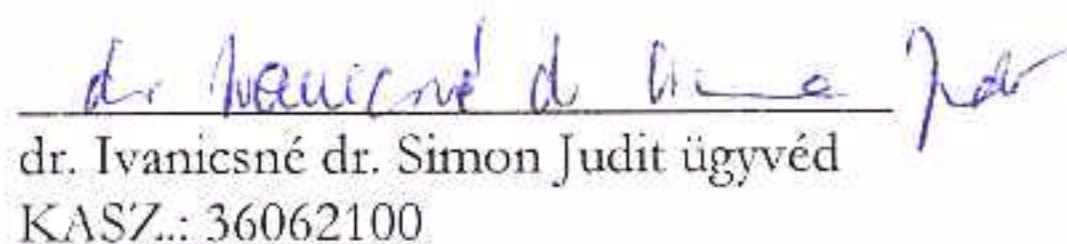 dr. Ivanicsné dr. Simon Judit
dr. Ivanicsné dr. Simon Judit ügyvéd
KASZ.: 36062100